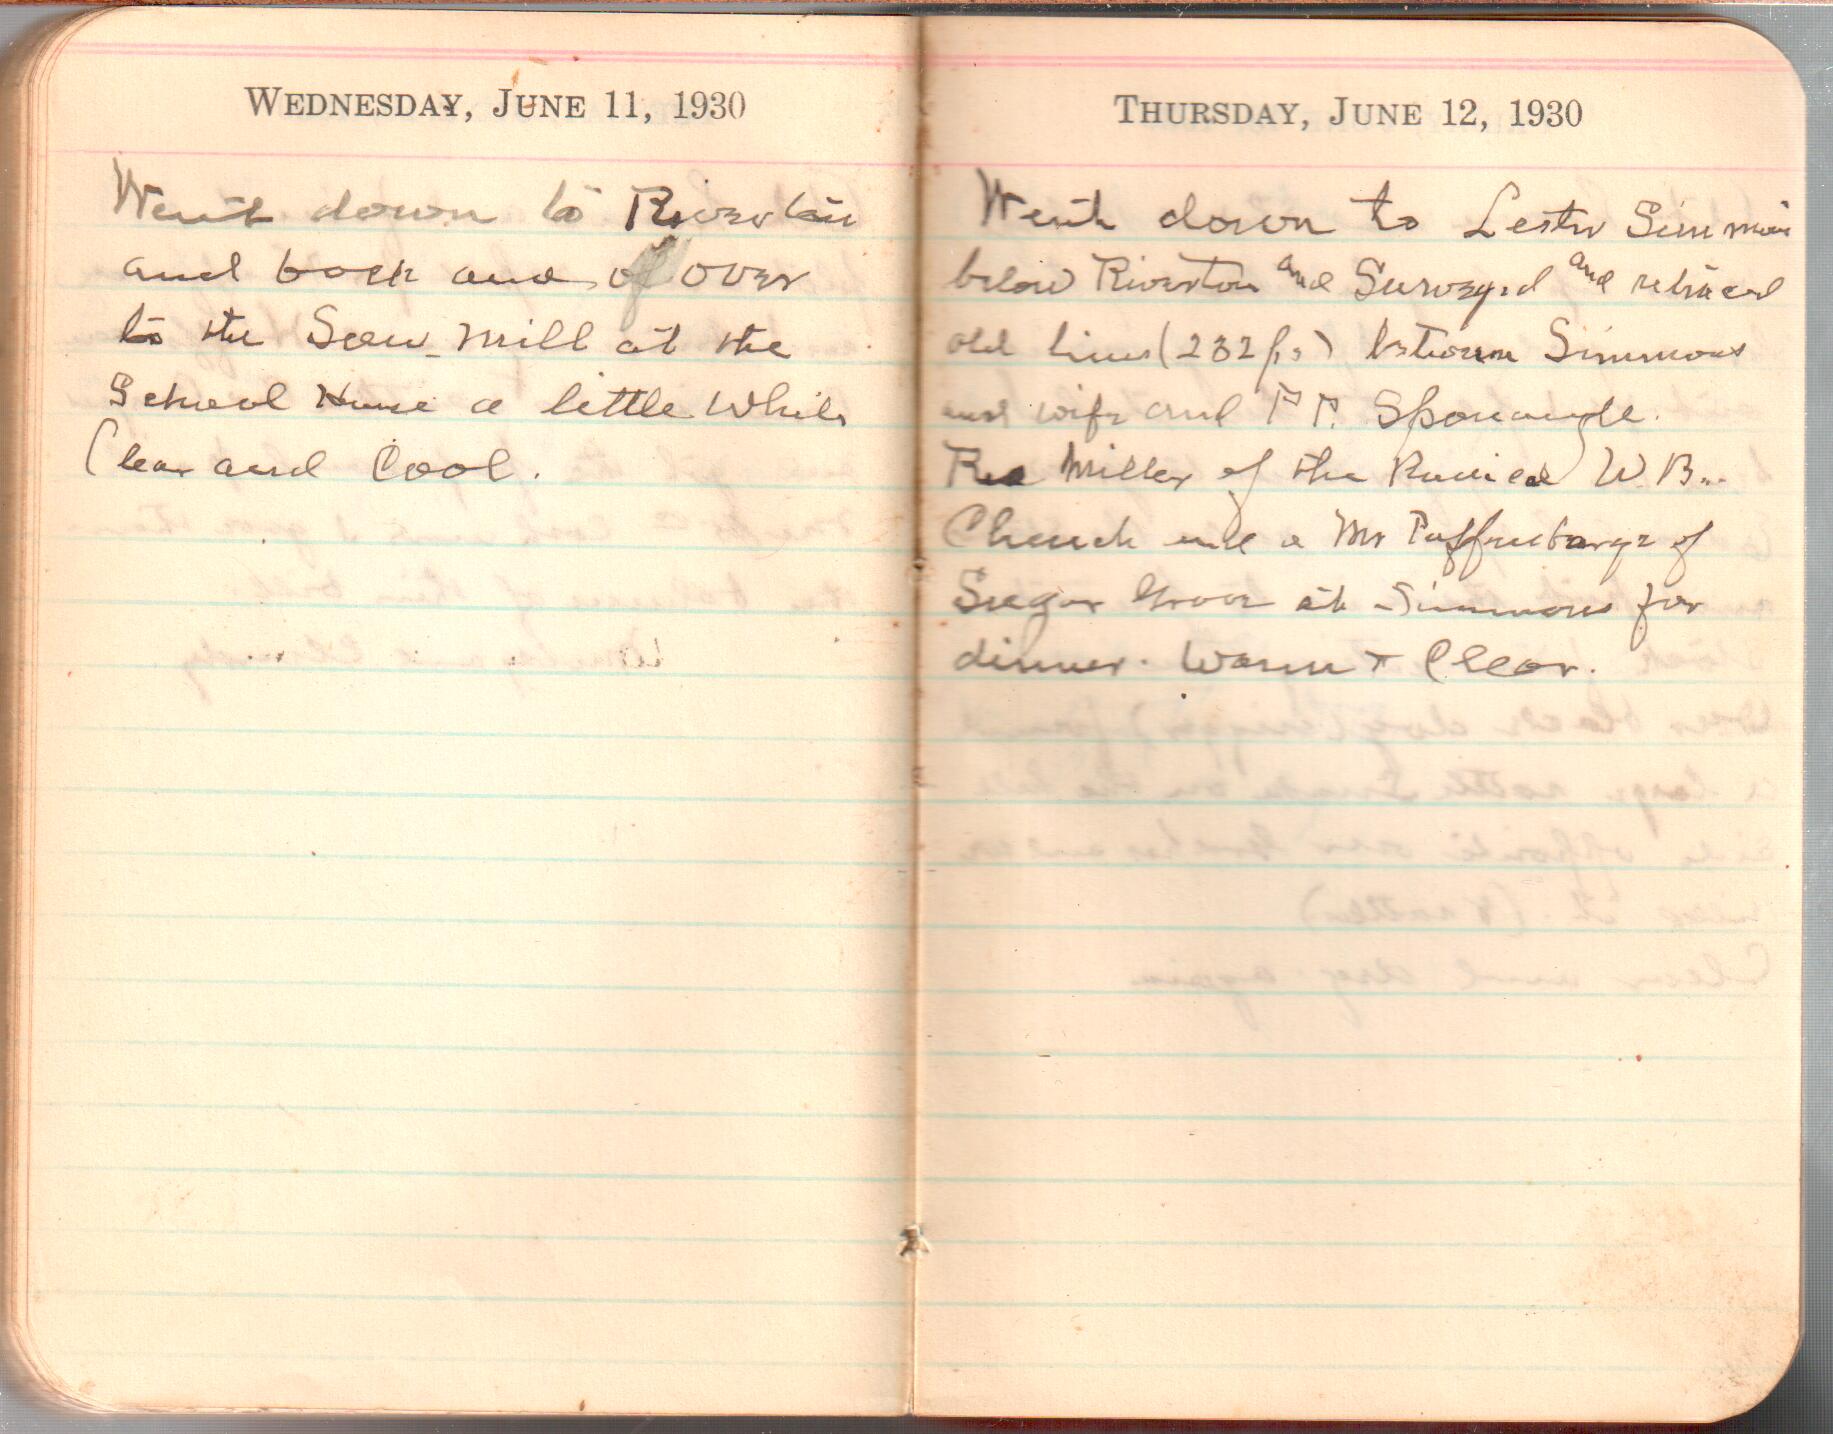 WEDNESDAY, JUNE 11, 1930
Went down to Riverton
and back and of over
to the Saw-Mill at the
School House a little While
Clear and Cool.
THURSDAY, JUNE 12, 1930
Went down to Lester Simmons
below Riverton and Surveyed and retraced
old lines (232 ps) between Simmons
and wife and P. P. Sponaugle.
Miller of the United B.
Church and a Mr Puffenbarge of
Sugar Grove at Simmons for
dinner. Warm + Clear.